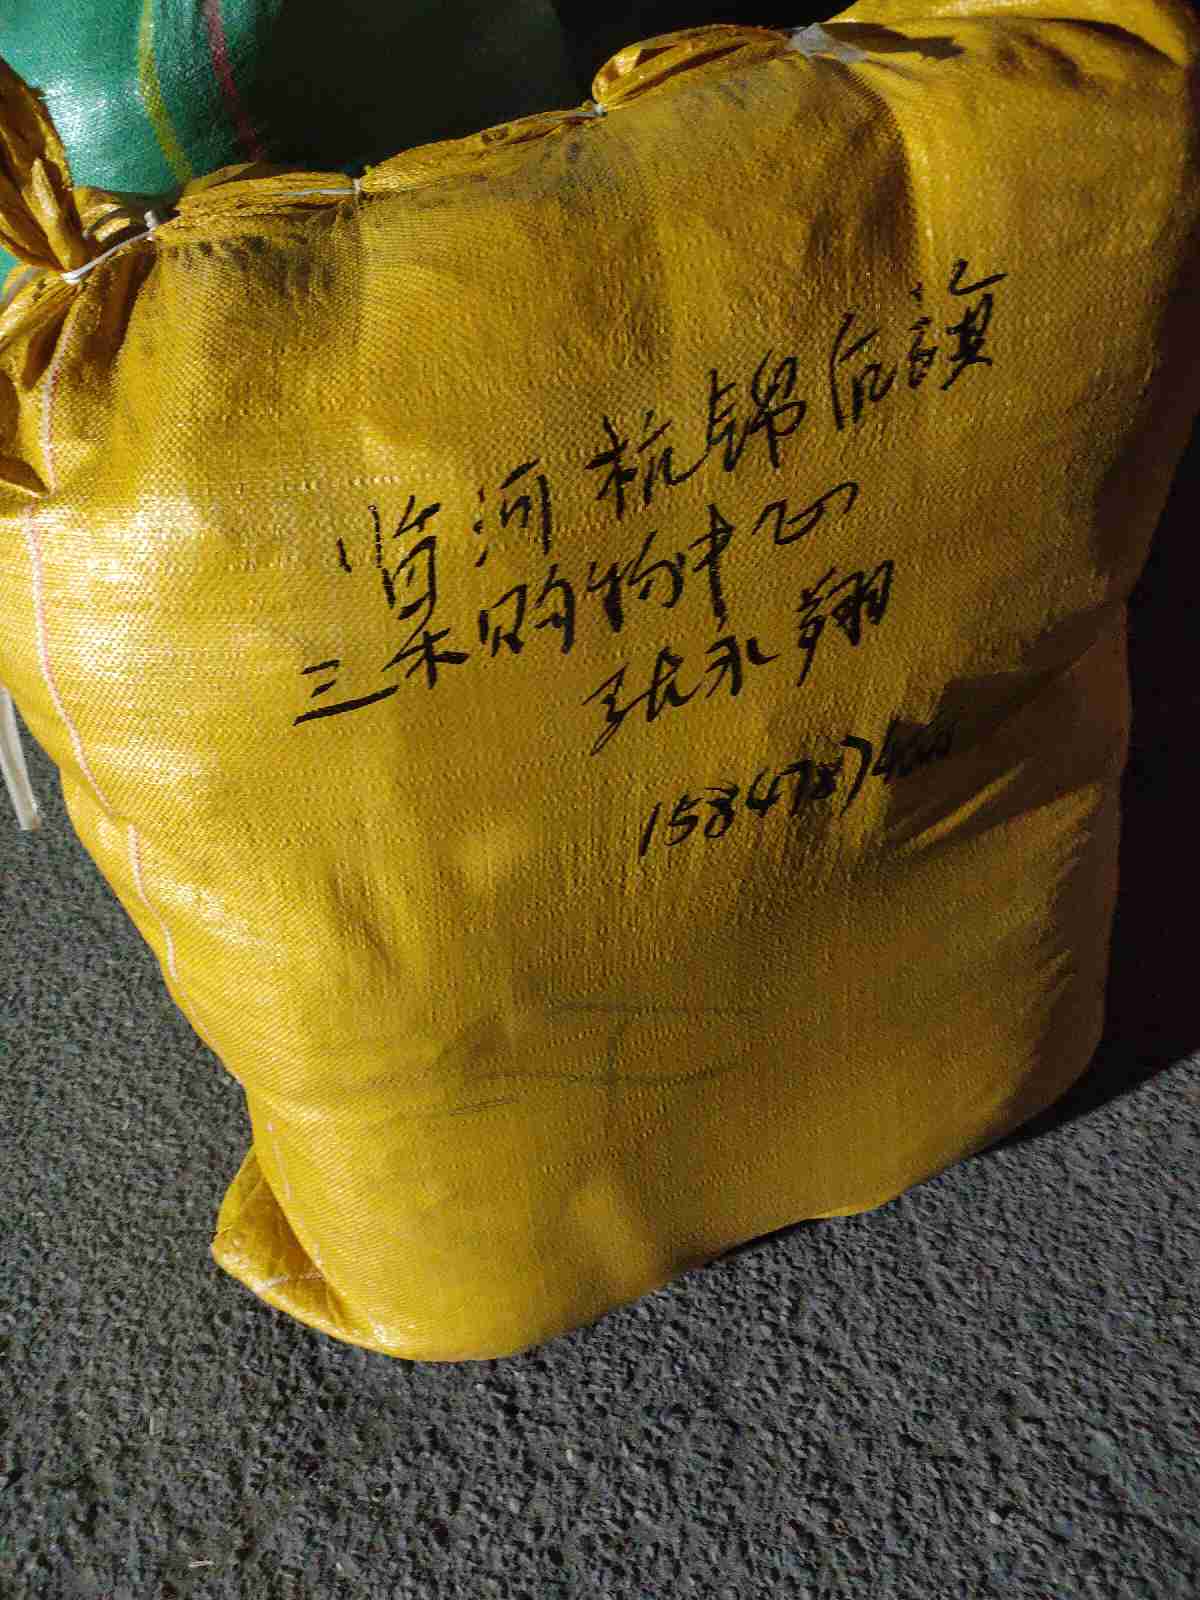 临河杭锦后旗
三采购物中心
张永翔
15847874000